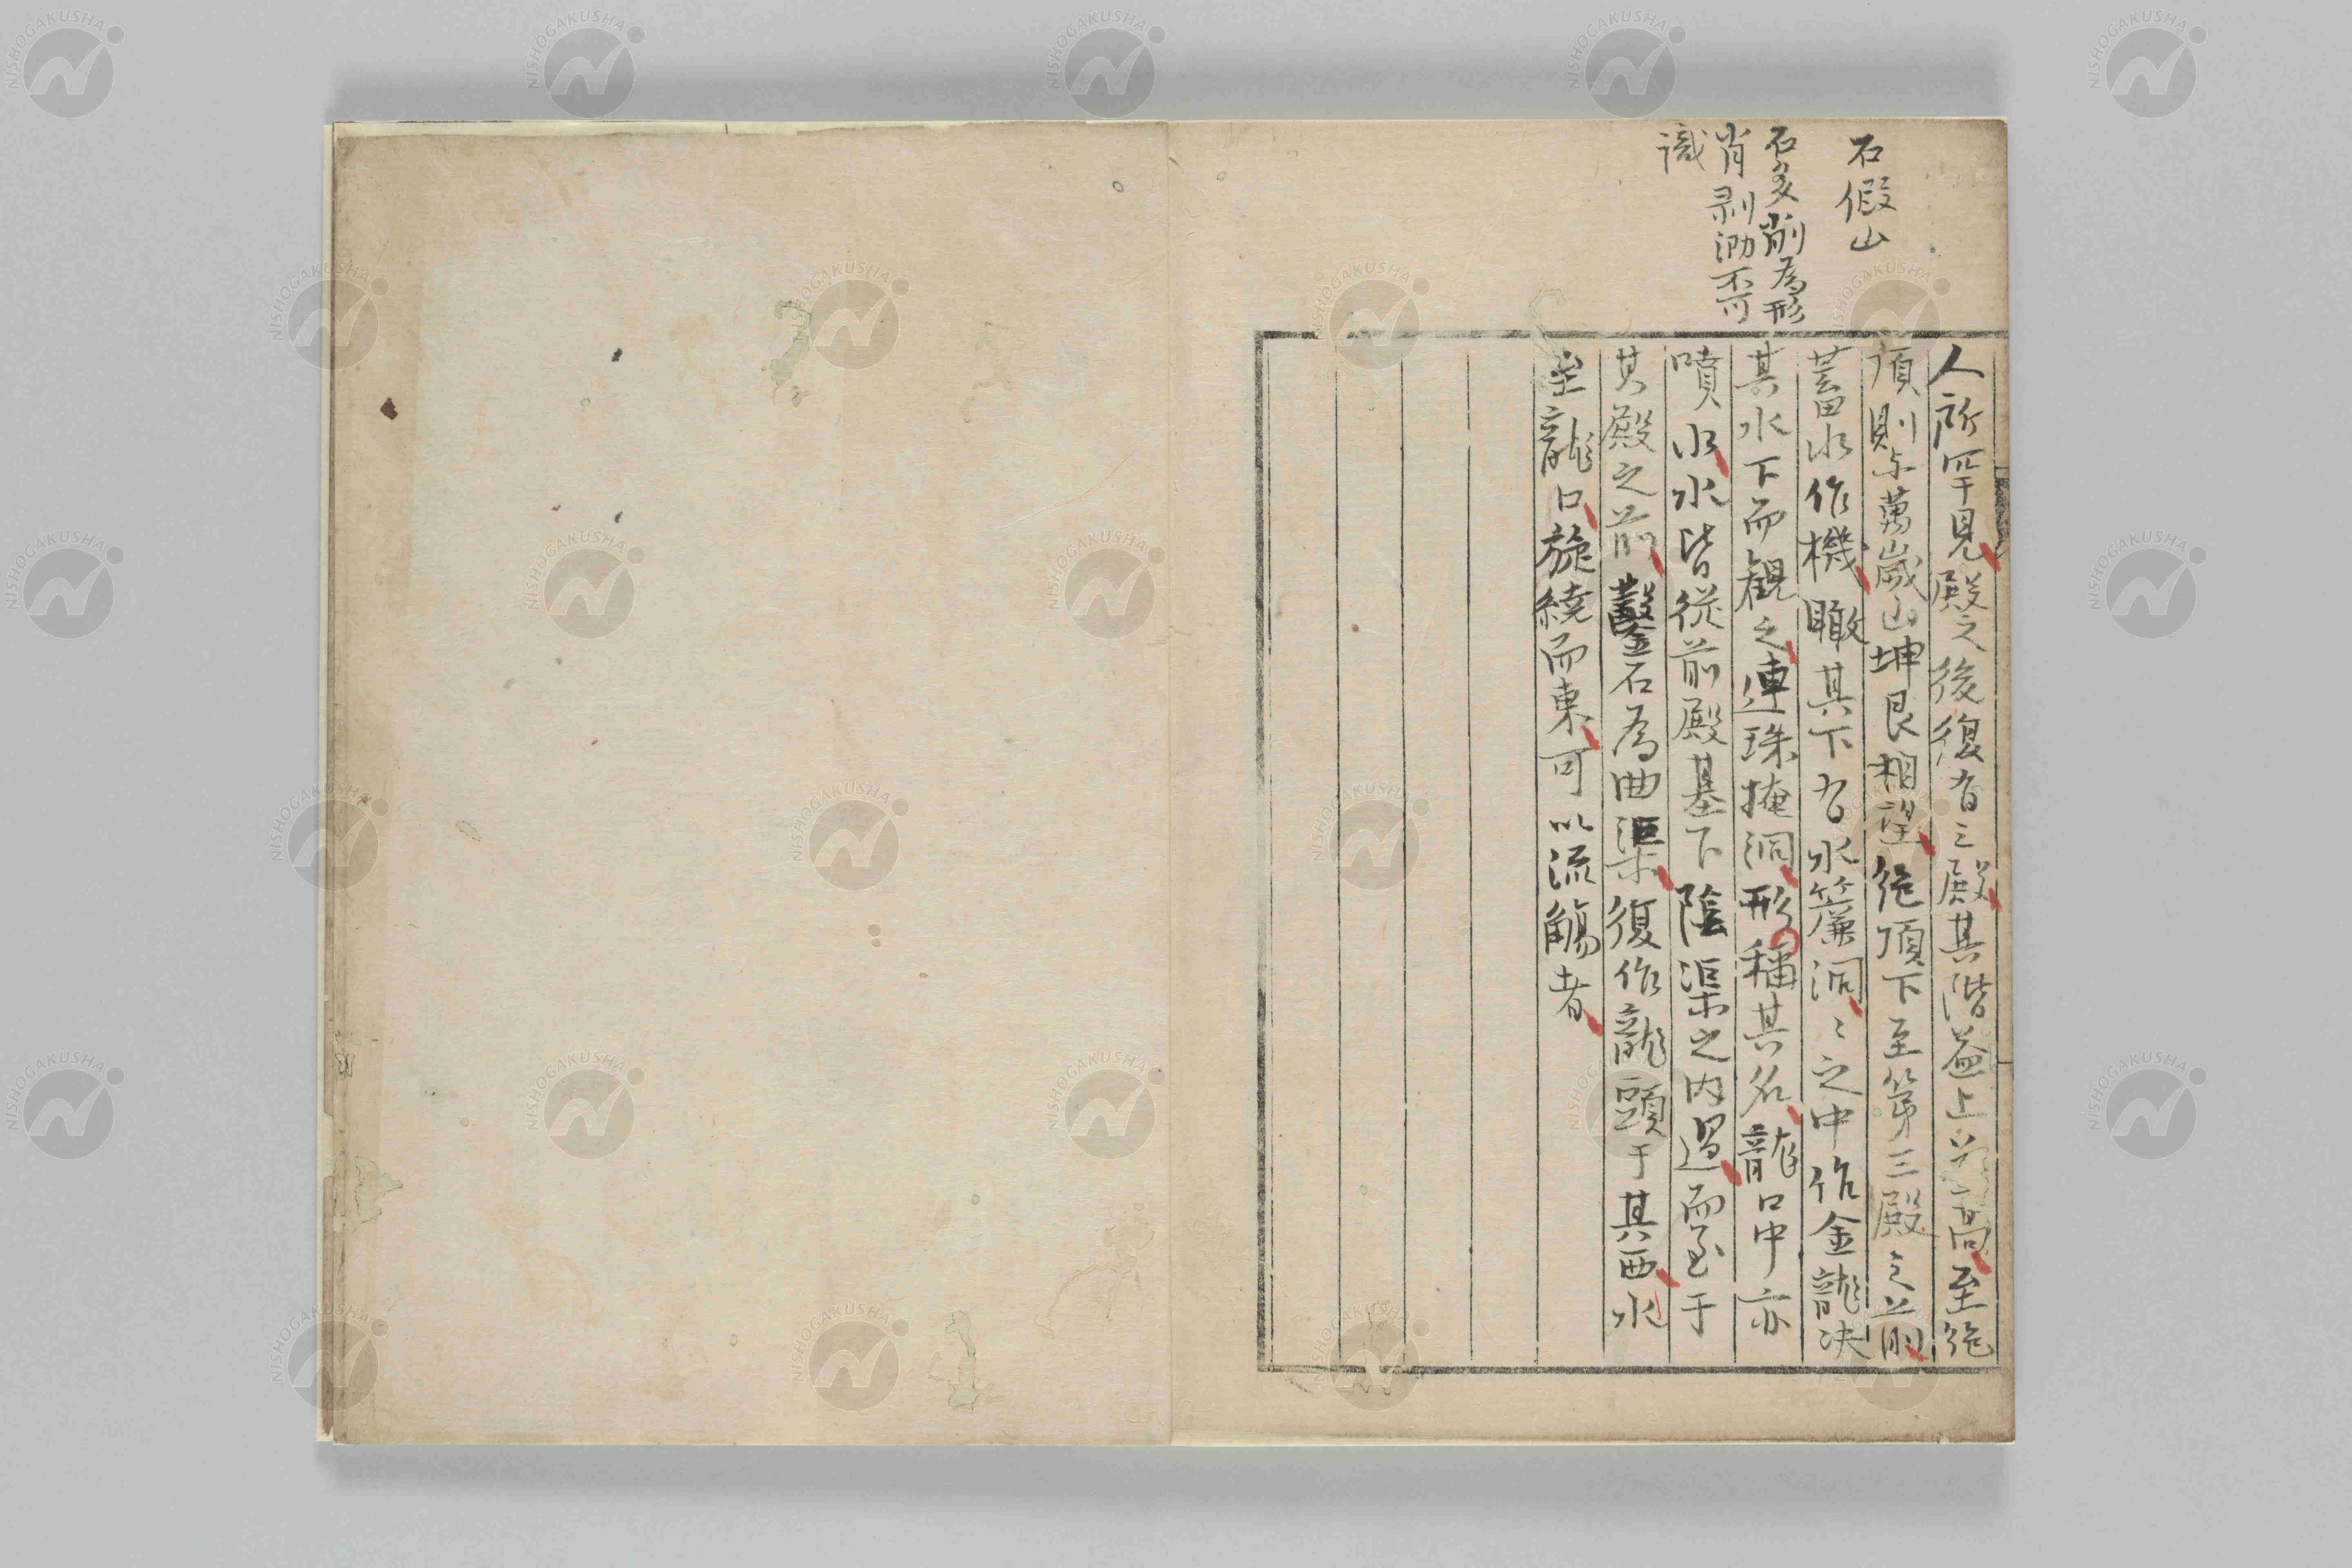 石假山
石多削為形
肖剥泐不可
識
人所罕見殿之後復有三殿其階益上益高至絶
頂則与萬嵗山坤艮相望絶頂下至第三殿之前
蓄水作機瞰其下有水簾洞〻之中作金龍决
其水下而観之連珠掩洞形稱其名龍口中亦
噴水水皆從前殿基下陰渠之内過而至于
其殿之前鑿石為曲渠復作龍頭于其西水
至龍口旋繞而東可以流觴者
NISHOGAKUSHA